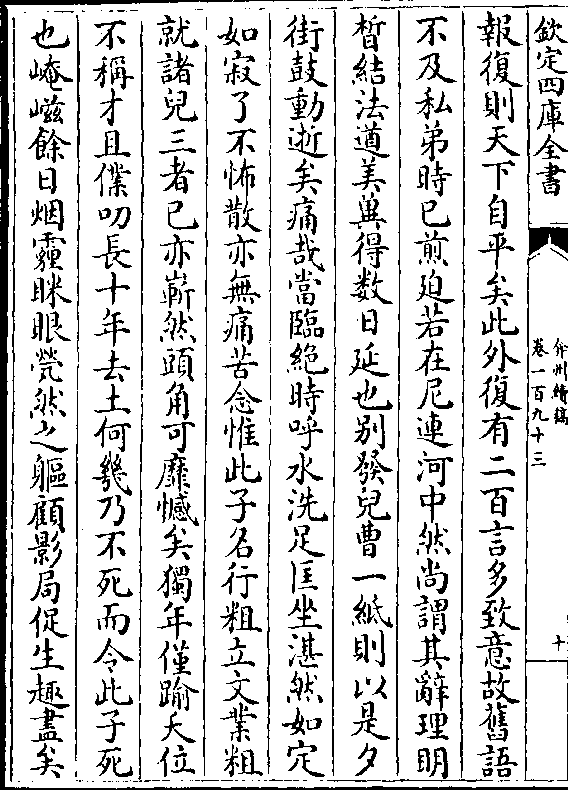 欽定四庫全書
弇州續稿
卷一百九十三
十
報復則天下自平矣此外復有二百言多致意故舊語
不及私弟時已煎迫若在尼連河中然尚謂其辭理明
晳結法遒美冀得数日延也别發兒曹一紙則以是夕
街鼓動逝矣痛哉當臨絶時呼水洗足匡坐湛然如定
如寂了不怖散亦無痛苦念惟此子名行粗立文業粗
就諸兒三者已亦嶄然頭角可靡憾矣獨年僅踰夭位
不稱才且僕叨長十年去土何幾乃不死而令此子死
也崦嵫餘日烟霾眯眼煢然之軀顧影局促生趣盡矣